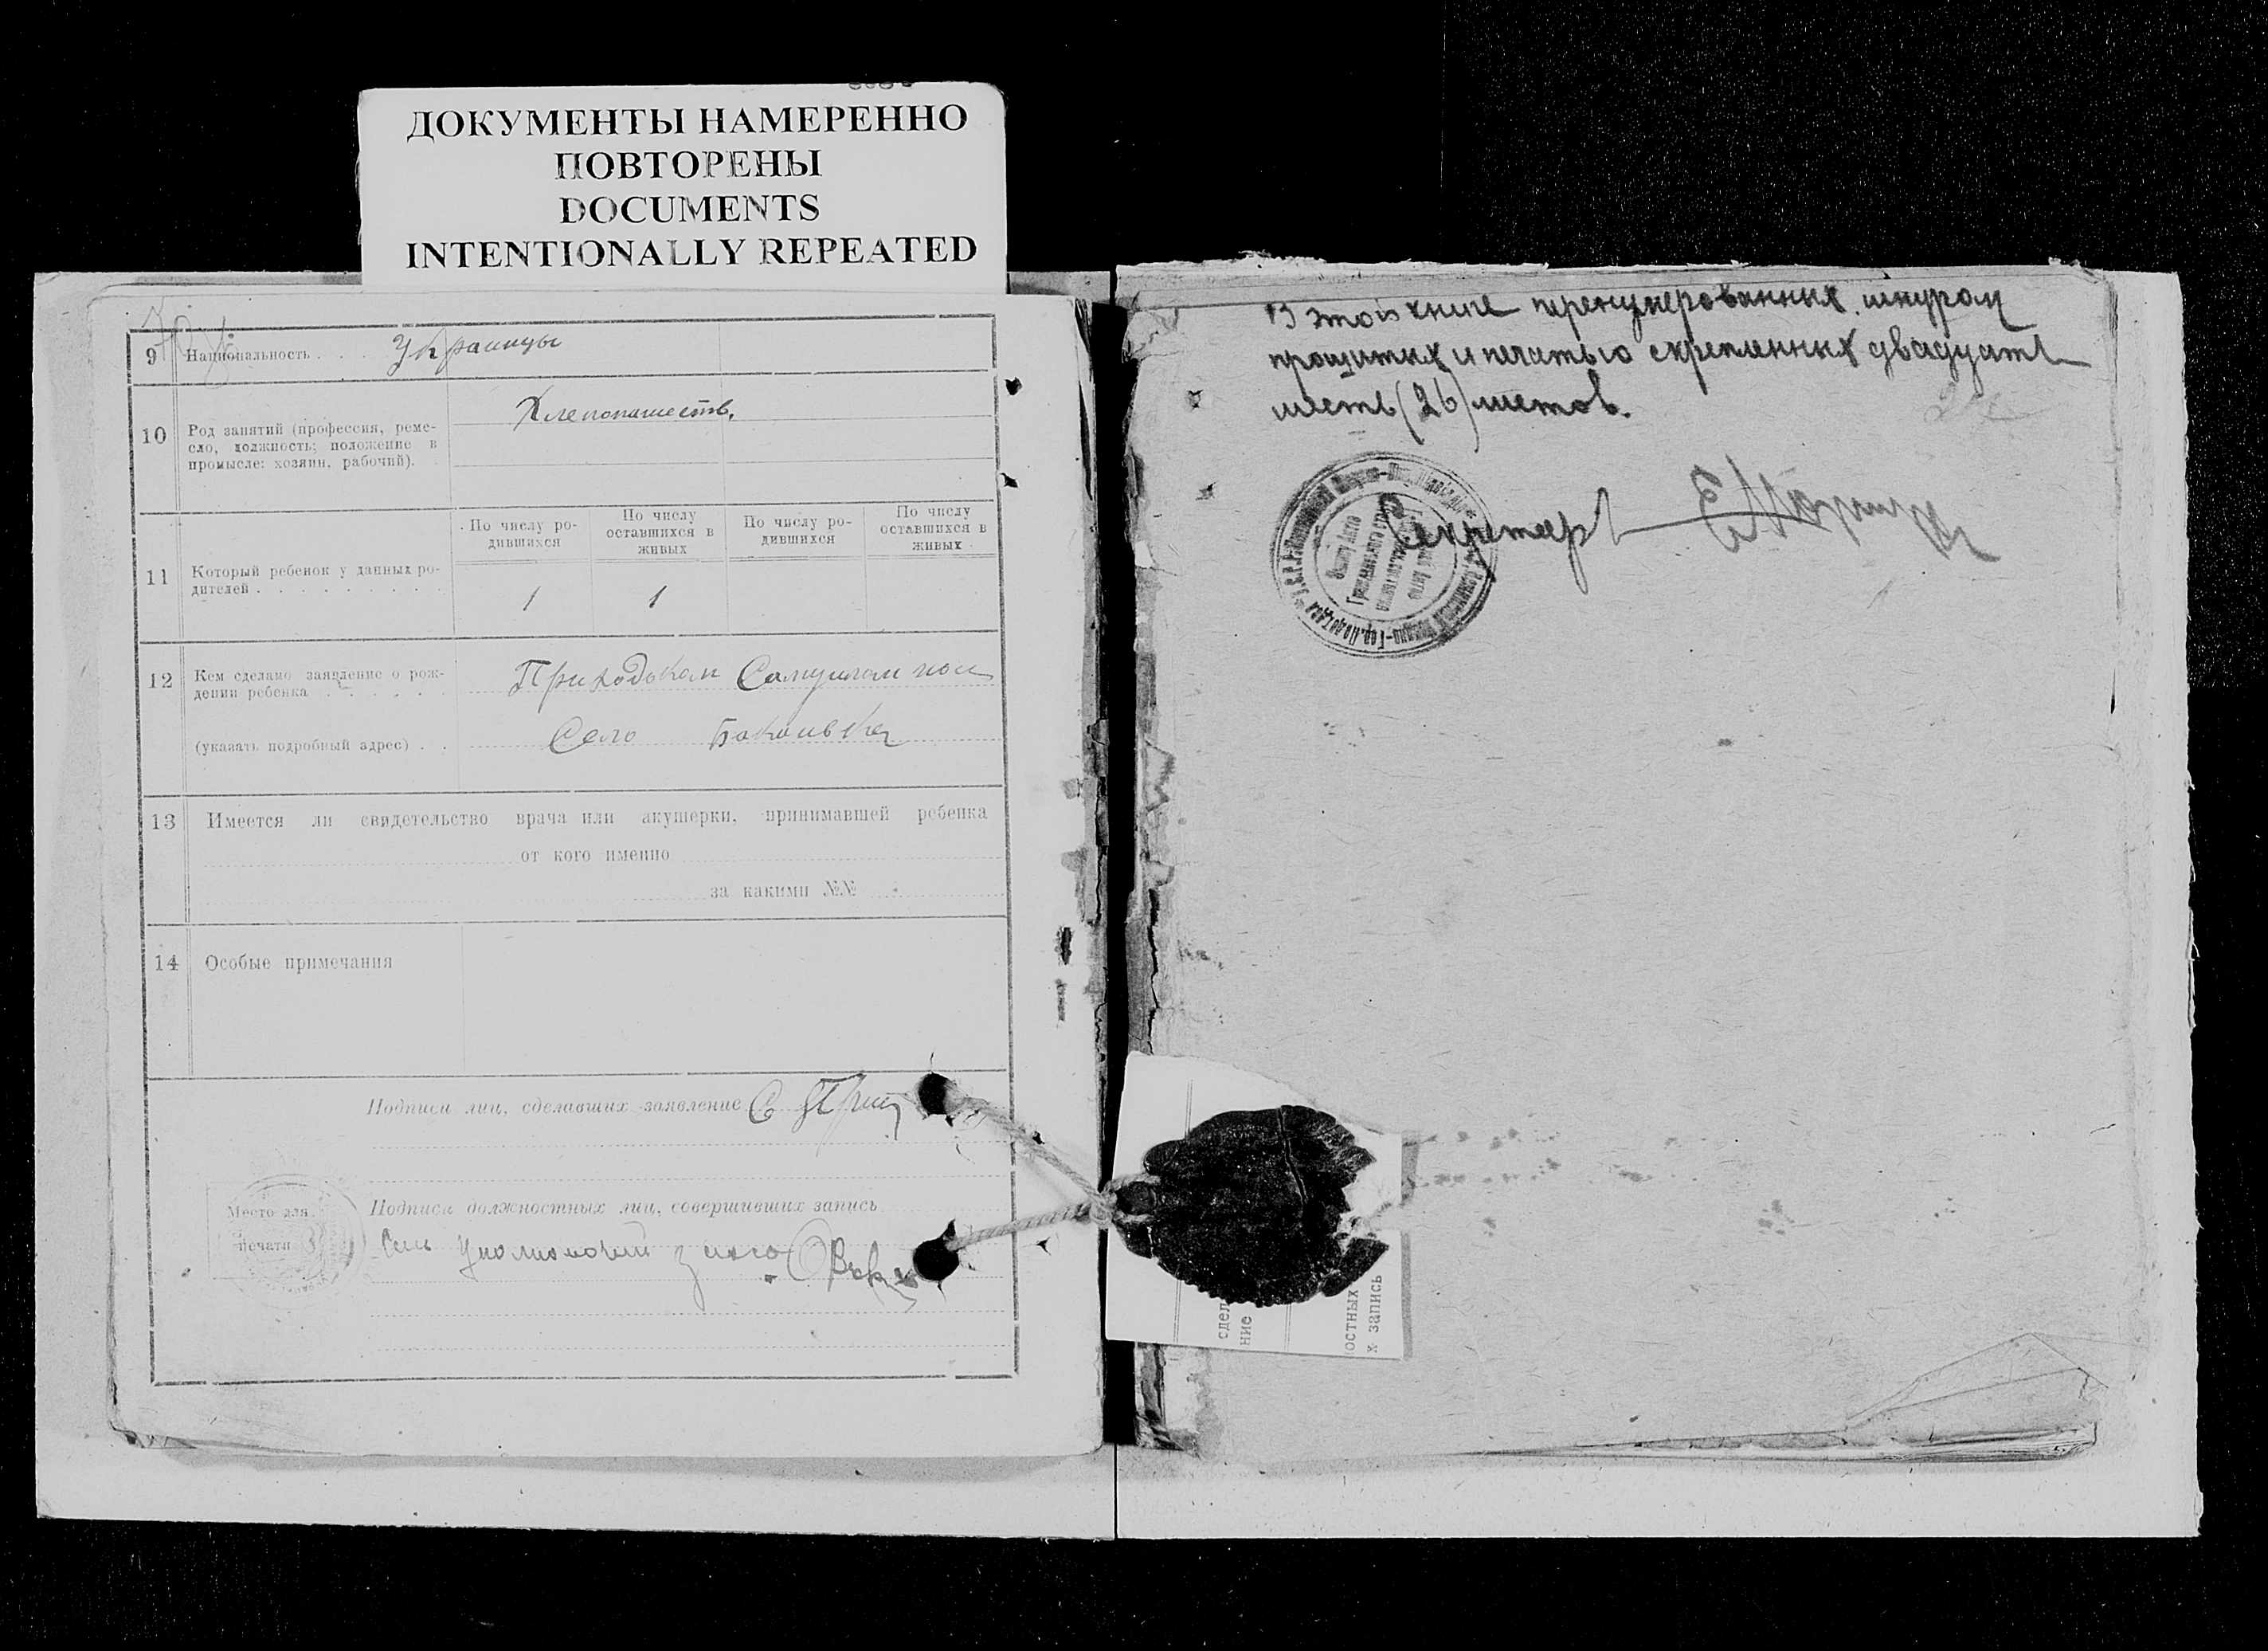 ДОКУМЕНТЫ НАМЕРЕННО
ПОВТОРЕНЫ
DOCUMENTS
INTENTIONALLY REPEATED
9 Национальность . . . Украинцы
10 Род занятий (профессия, реме-
сло, должность; положение в
промысле: хозяин, рабочий).
Хлепопашеств.
11 Который ребенок у данных ро-
дителей . . . . . . . . .
По числу ро-
дившихся
По числу
оставшихся в
живых
По числу ро-
дившихся
По числу
оставшихся в
живых
1 1
12 Кем сделано заявление о рож-
дении ребенка . . . . .
Приходокам
(указать подробный адрес) . .
Село
13 Имеется ли свидетельство врача или акушерки, принимавшей ребенка
от кого именно
за какими №№
14 Особые примечания
Подписи лиц, сделавших заявление С
Место для
печати
Подписи должностных лиц, совершивших запись
В этой книге перенумерованных шнуром
прошитых и печатью скрепленных двадцать
шесть (26) листов.
Секретарь
сдел
ние
остных
х запись